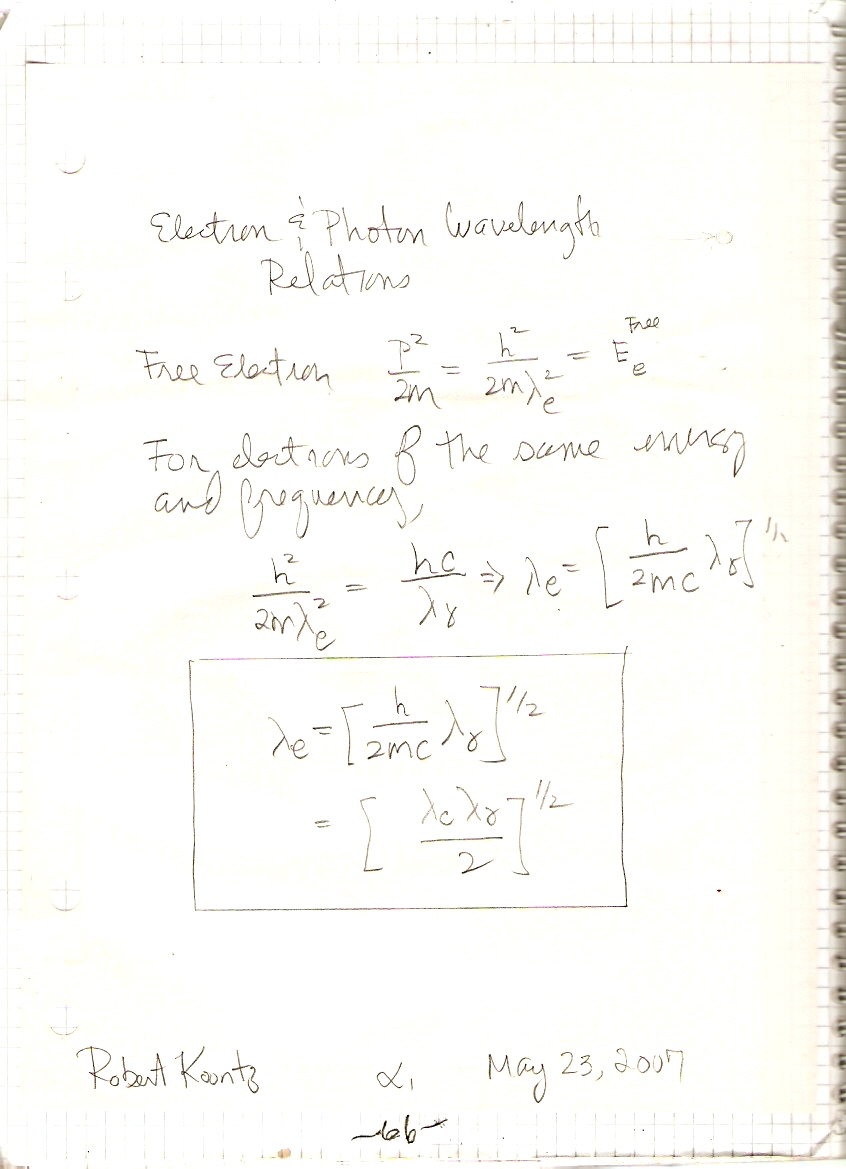 Electron & Photon Wavelength
Relations
Free Electron P²/2m = h²/2mλe² = Ee^Free
For electrons of the same energy
and frequency,
h²/2mλe² = hc/λγ ⇒ λe = [h/2mc λγ]^1/2
λe = [h/2mc λγ]^1/2
= [λcλγ/2]^1/2
Robert Koontz α₁ May 23, 2007
-66-